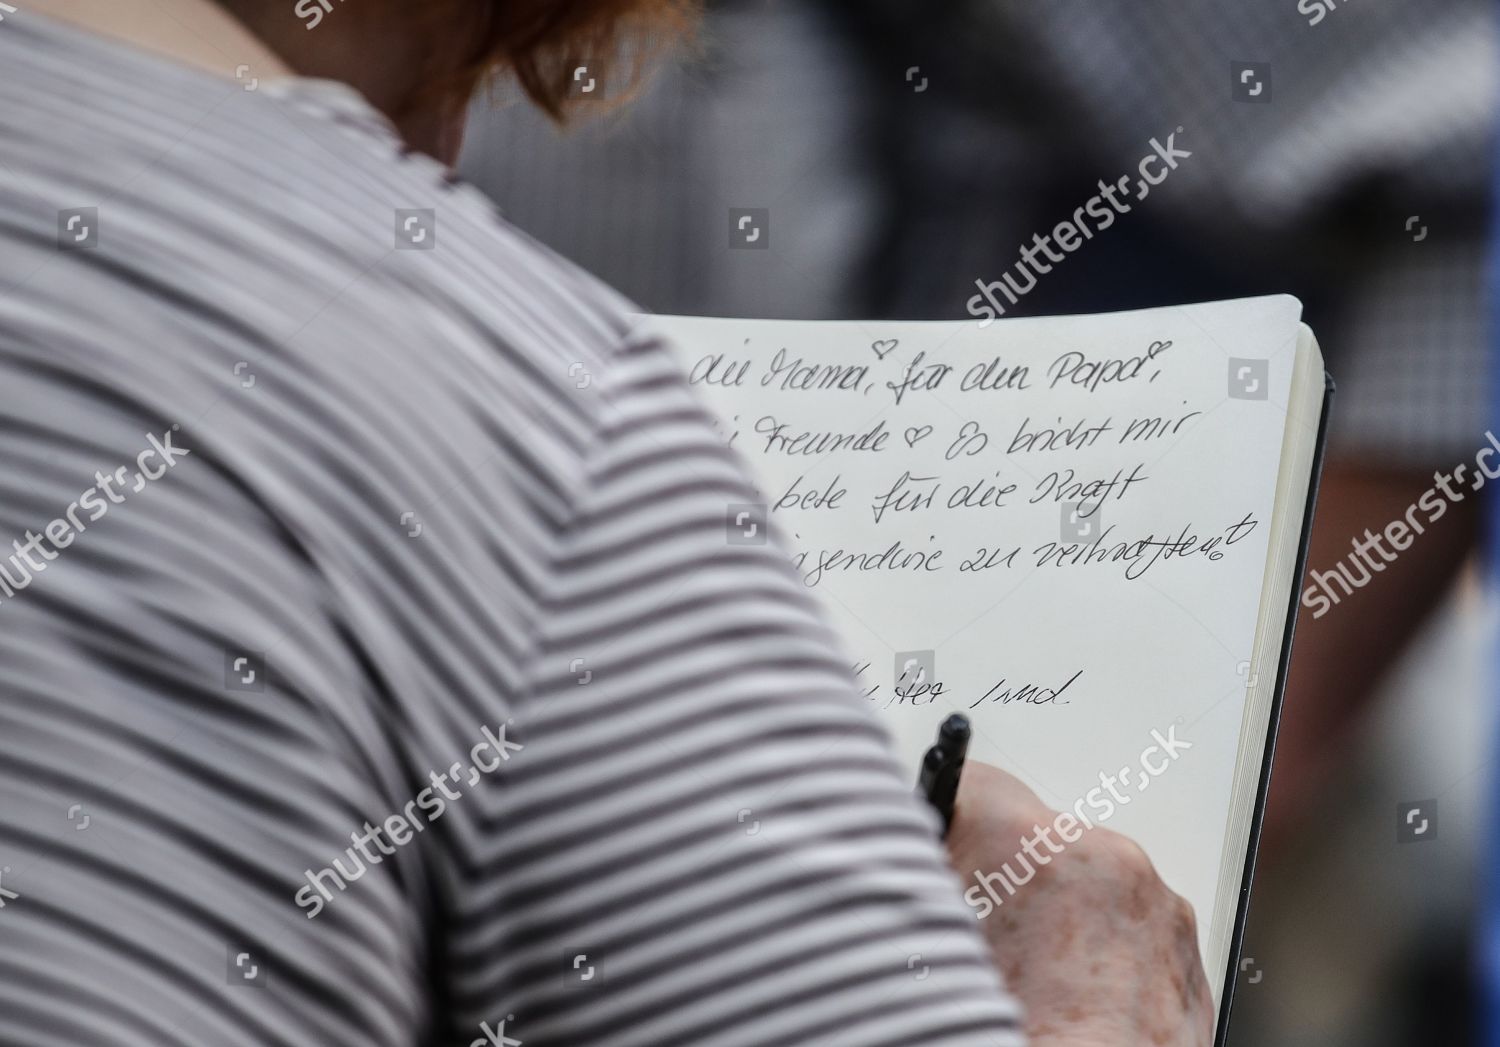 die Mama, ♡ für den Papa, ♡
Freunde ♡ Es bricht mir
bete für die Kraft
irgendwie zu verkraften.
und
shutterstock
shutterstock
shutterstock
shutterstock
shutterstock
shutterstock